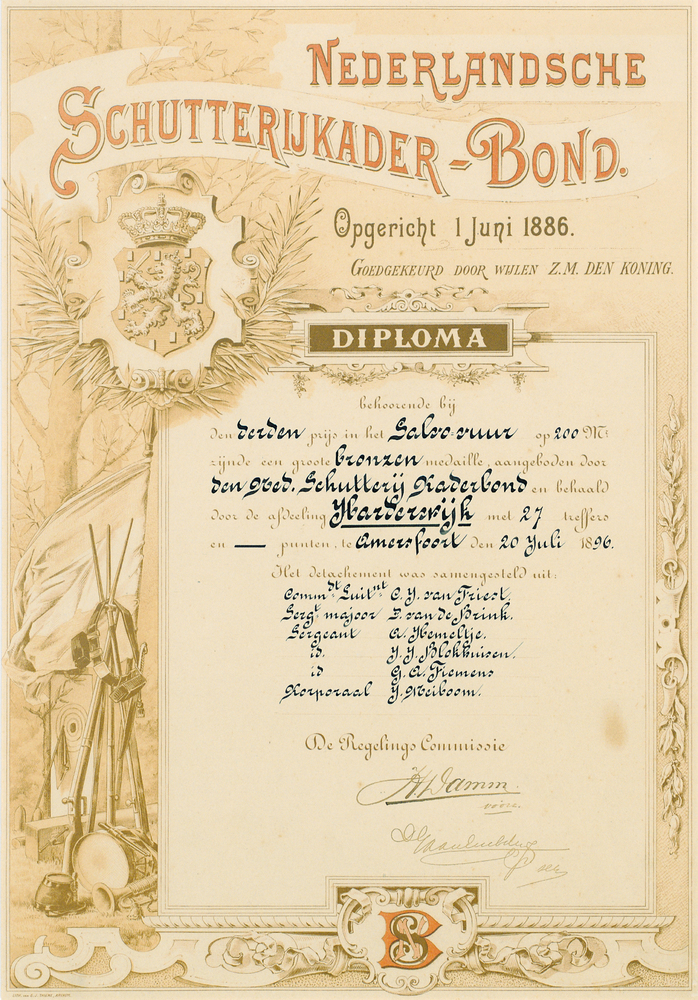 NEDERLANDSCHE
SCHUTTERIJKADER-BOND.
Opgericht 1 Juni 1886.
GOEDGEKEURD DOOR WIJLEN Z.M. DEN KONING.
DIPLOMA
behoorende bij
den derden prijs in het Salvo-vuur op 200 Mr
zijnde een groote bronzen medaille, aangeboden door
den Ned. Schutterij Kaderbond en behaald
door de afdeeling Harderwijk met 27 treffers
en — punten, te Amersfoort den 20 Juli 1896.
Het detachement was samengesteld uit:
Commdt Luitnt C. J. van Triest.
Sergt majoor D. van de Brink.
Sergeant A. Hemeltje.
id. J. J. Blokhuisen.
id G. A. Tiemens
Korporaal J. Meiboom.
De Regelings Commissie
Damm
voorz.
secr
SB